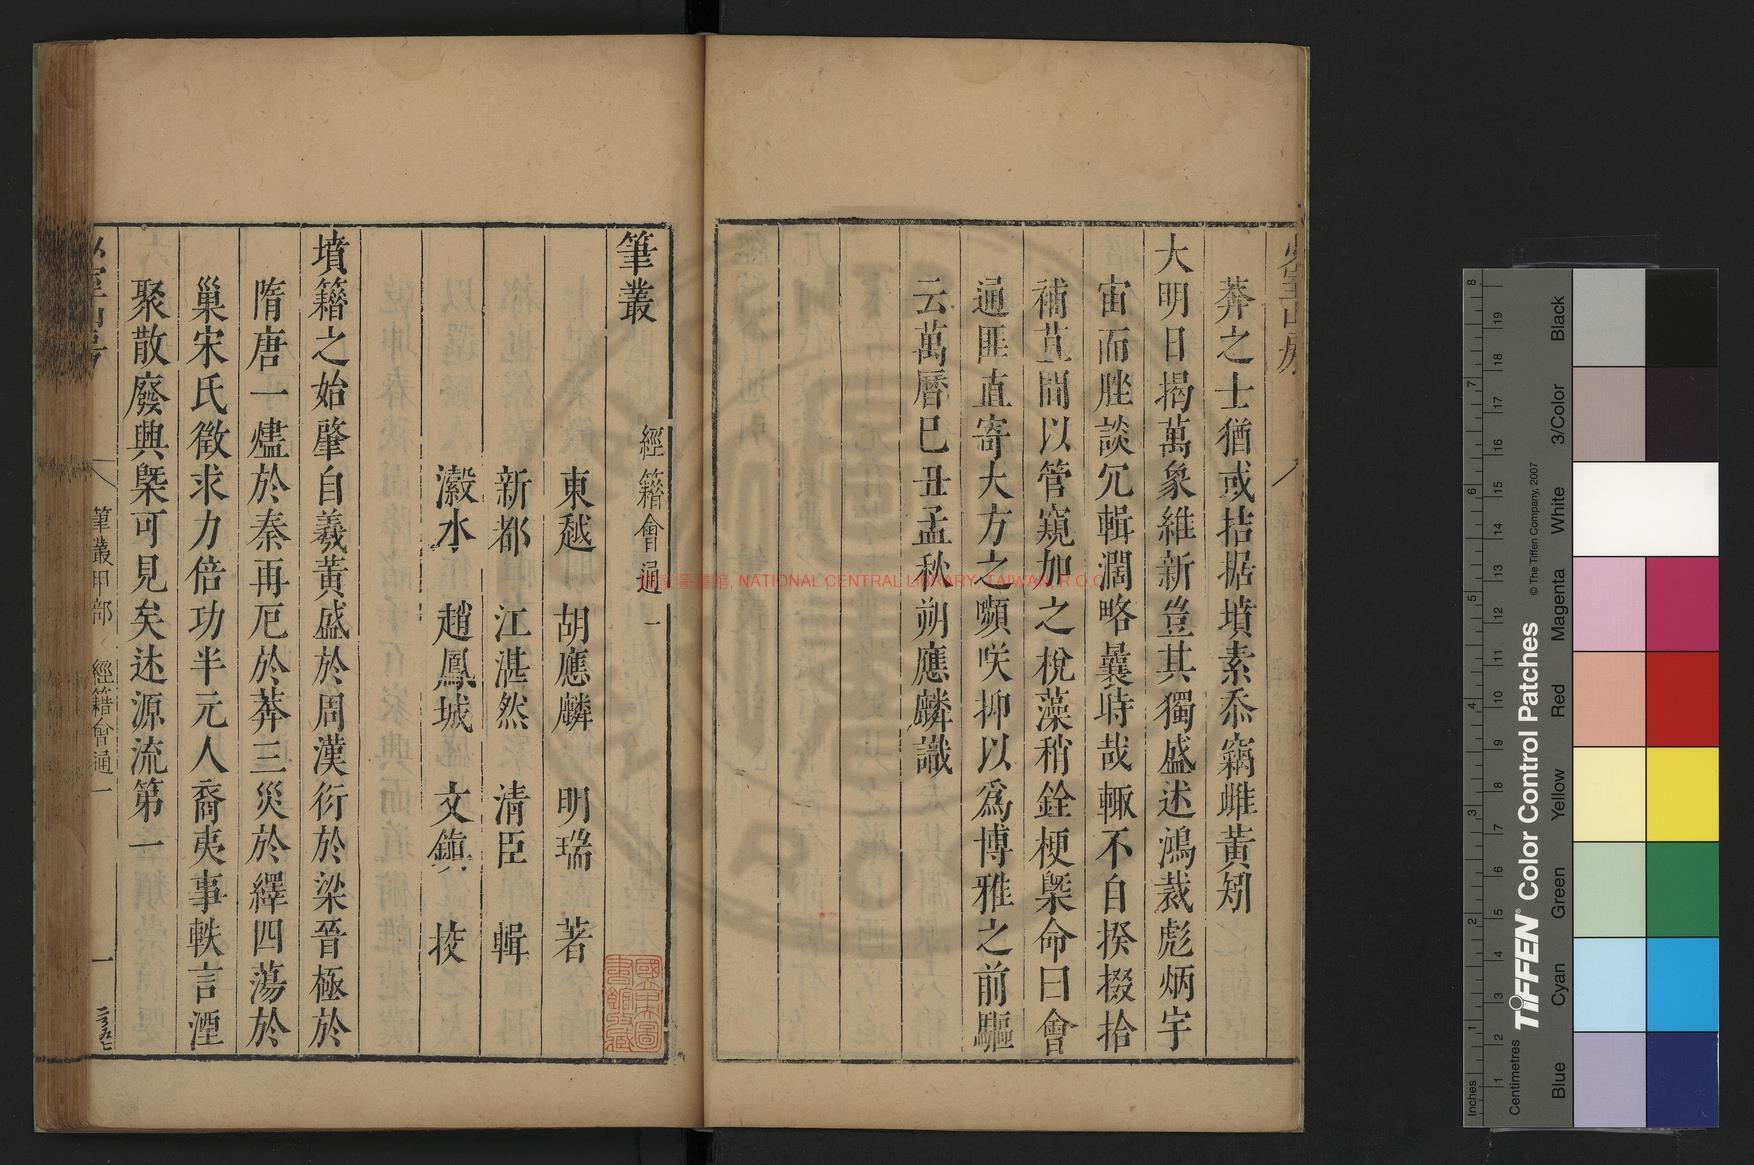 莽之士猶或拮据墳素忝竊雌黃矧
大明日揭萬象維新豈其獨盛述鴻裁彪炳宇
宙而脞談冗輯濶略曩時哉輒不自揆掇拾
補苴間以管窺加之梲藻稍銓梗槩命曰會
通匪直寄大方之嚬咲抑以爲博雅之前驅
云萬曆己丑孟秋朔應麟識
筆叢
經籍會通一
東越 胡應麟 明瑞 著
新都 江湛然 清臣 輯
瀫水 趙鳳城 文鎮 挍
墳籍之始肇自羲黃盛於周漢衍於梁晉極於
隋唐一燼於秦再厄於莽三災於繹四蕩於
巢宋氏徵求力倍功半元人裔夷事軼言湮
聚散廢興槩可見矣述源流第一
筆叢甲部 經籍會通一
一
國家圖書館, NATIONAL CENTRAL LIBRARY, TAIWAN, R.O.C
TIFFEN® Color Control Patches
© The Tiffen Company, 2007
Inches
Centimetres
Blue
Cyan
Green
Yellow
Red
Magenta
White
3/Color
Black